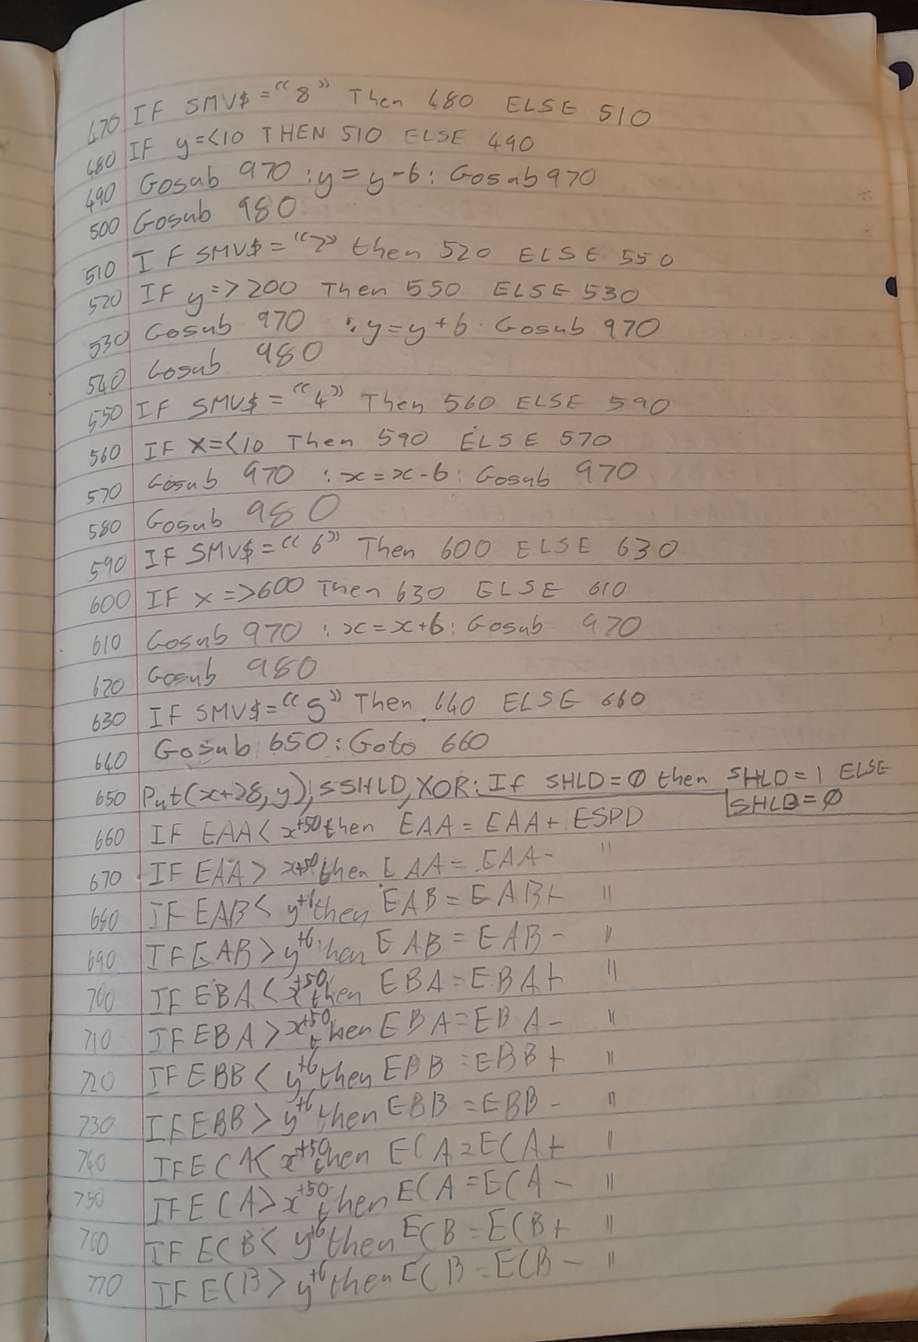 470 IF SMV$ = "8" Then 480 ELSE 510
480 IF y=<10 THEN 510 ELSE 490
490 Gosub 970 : y = y-6 : Gosub 970
500 Gosub 980
510 IF SMV$ = "2" then 520 ELSE 550
520 IF y=>200 Then 550 ELSE 530
530 Gosub 970 : y=y+6 : Gosub 970
540 Gosub 980
550 IF SMV$ = "4" Then 560 ELSE 590
560 IF X=<10 Then 590 ELSE 570
570 Gosub 970 : x=x-6 : Gosub 970
580 Gosub 980
590 IF SMV$="6" Then 600 ELSE 630
600 IF x=>600 Then 630 ELSE 610
610 Gosub 970 : x=x+6 : Gosub 970
620 Gosub 980
630 IF SMV$="5" Then 640 ELSE 660
640 Gosub 650 : Goto 660
650 Put(x+28,y),SSHLD,XOR: If SHLD=0 then SHLD=1 ELSE
SHLD=0
660 IF EAA < x+50 then EAA = EAA+ ESPD
670 IF EAA > x+50 then EAA = EAA- "
680 IF EAB < y+6 then EAB = EAB+ "
690 IF EAB > y+6 then EAB = EAB- "
700 IF EBA < x+50 then EBA = EBA+ "
710 IF EBA > x+50 then EBA = EBA- "
720 IF EBB < y+6 then EBB = EBB+ "
730 IF EBB > y+6 then EBB = EBB- "
740 IF ECA < x+50 then ECA = ECA+ "
750 IF ECA > x+50 then ECA = ECA- "
760 IF ECB < y+6 then ECB = ECB+ "
770 IF ECB > y+6 then ECB = ECB- "